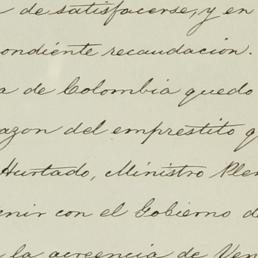 de satisfacerse, y en
ondiente recaudacion.
a de Colombia quedo
azon del emprestito q
Hurtado, Ministro Plen
enir con el Gobierno d
la acreencia de Ven